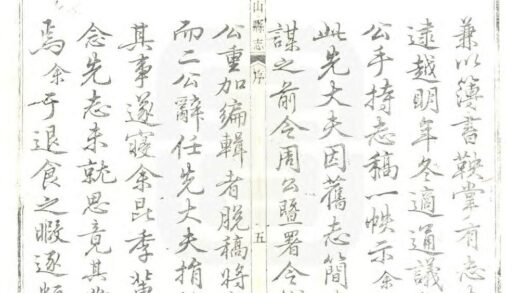 兼以簿書鞅掌有志
遠越明年冬適通議
公手持志稿一帙示余
此先大夫因舊志簡
謀之前令周公曁署令
山縣志 序 五
公重加编輯者脱稿將
而二公辭任先大夫捐
其事遂寢余昆季輩
念先志未就思竟其
焉余于退食之暇逐